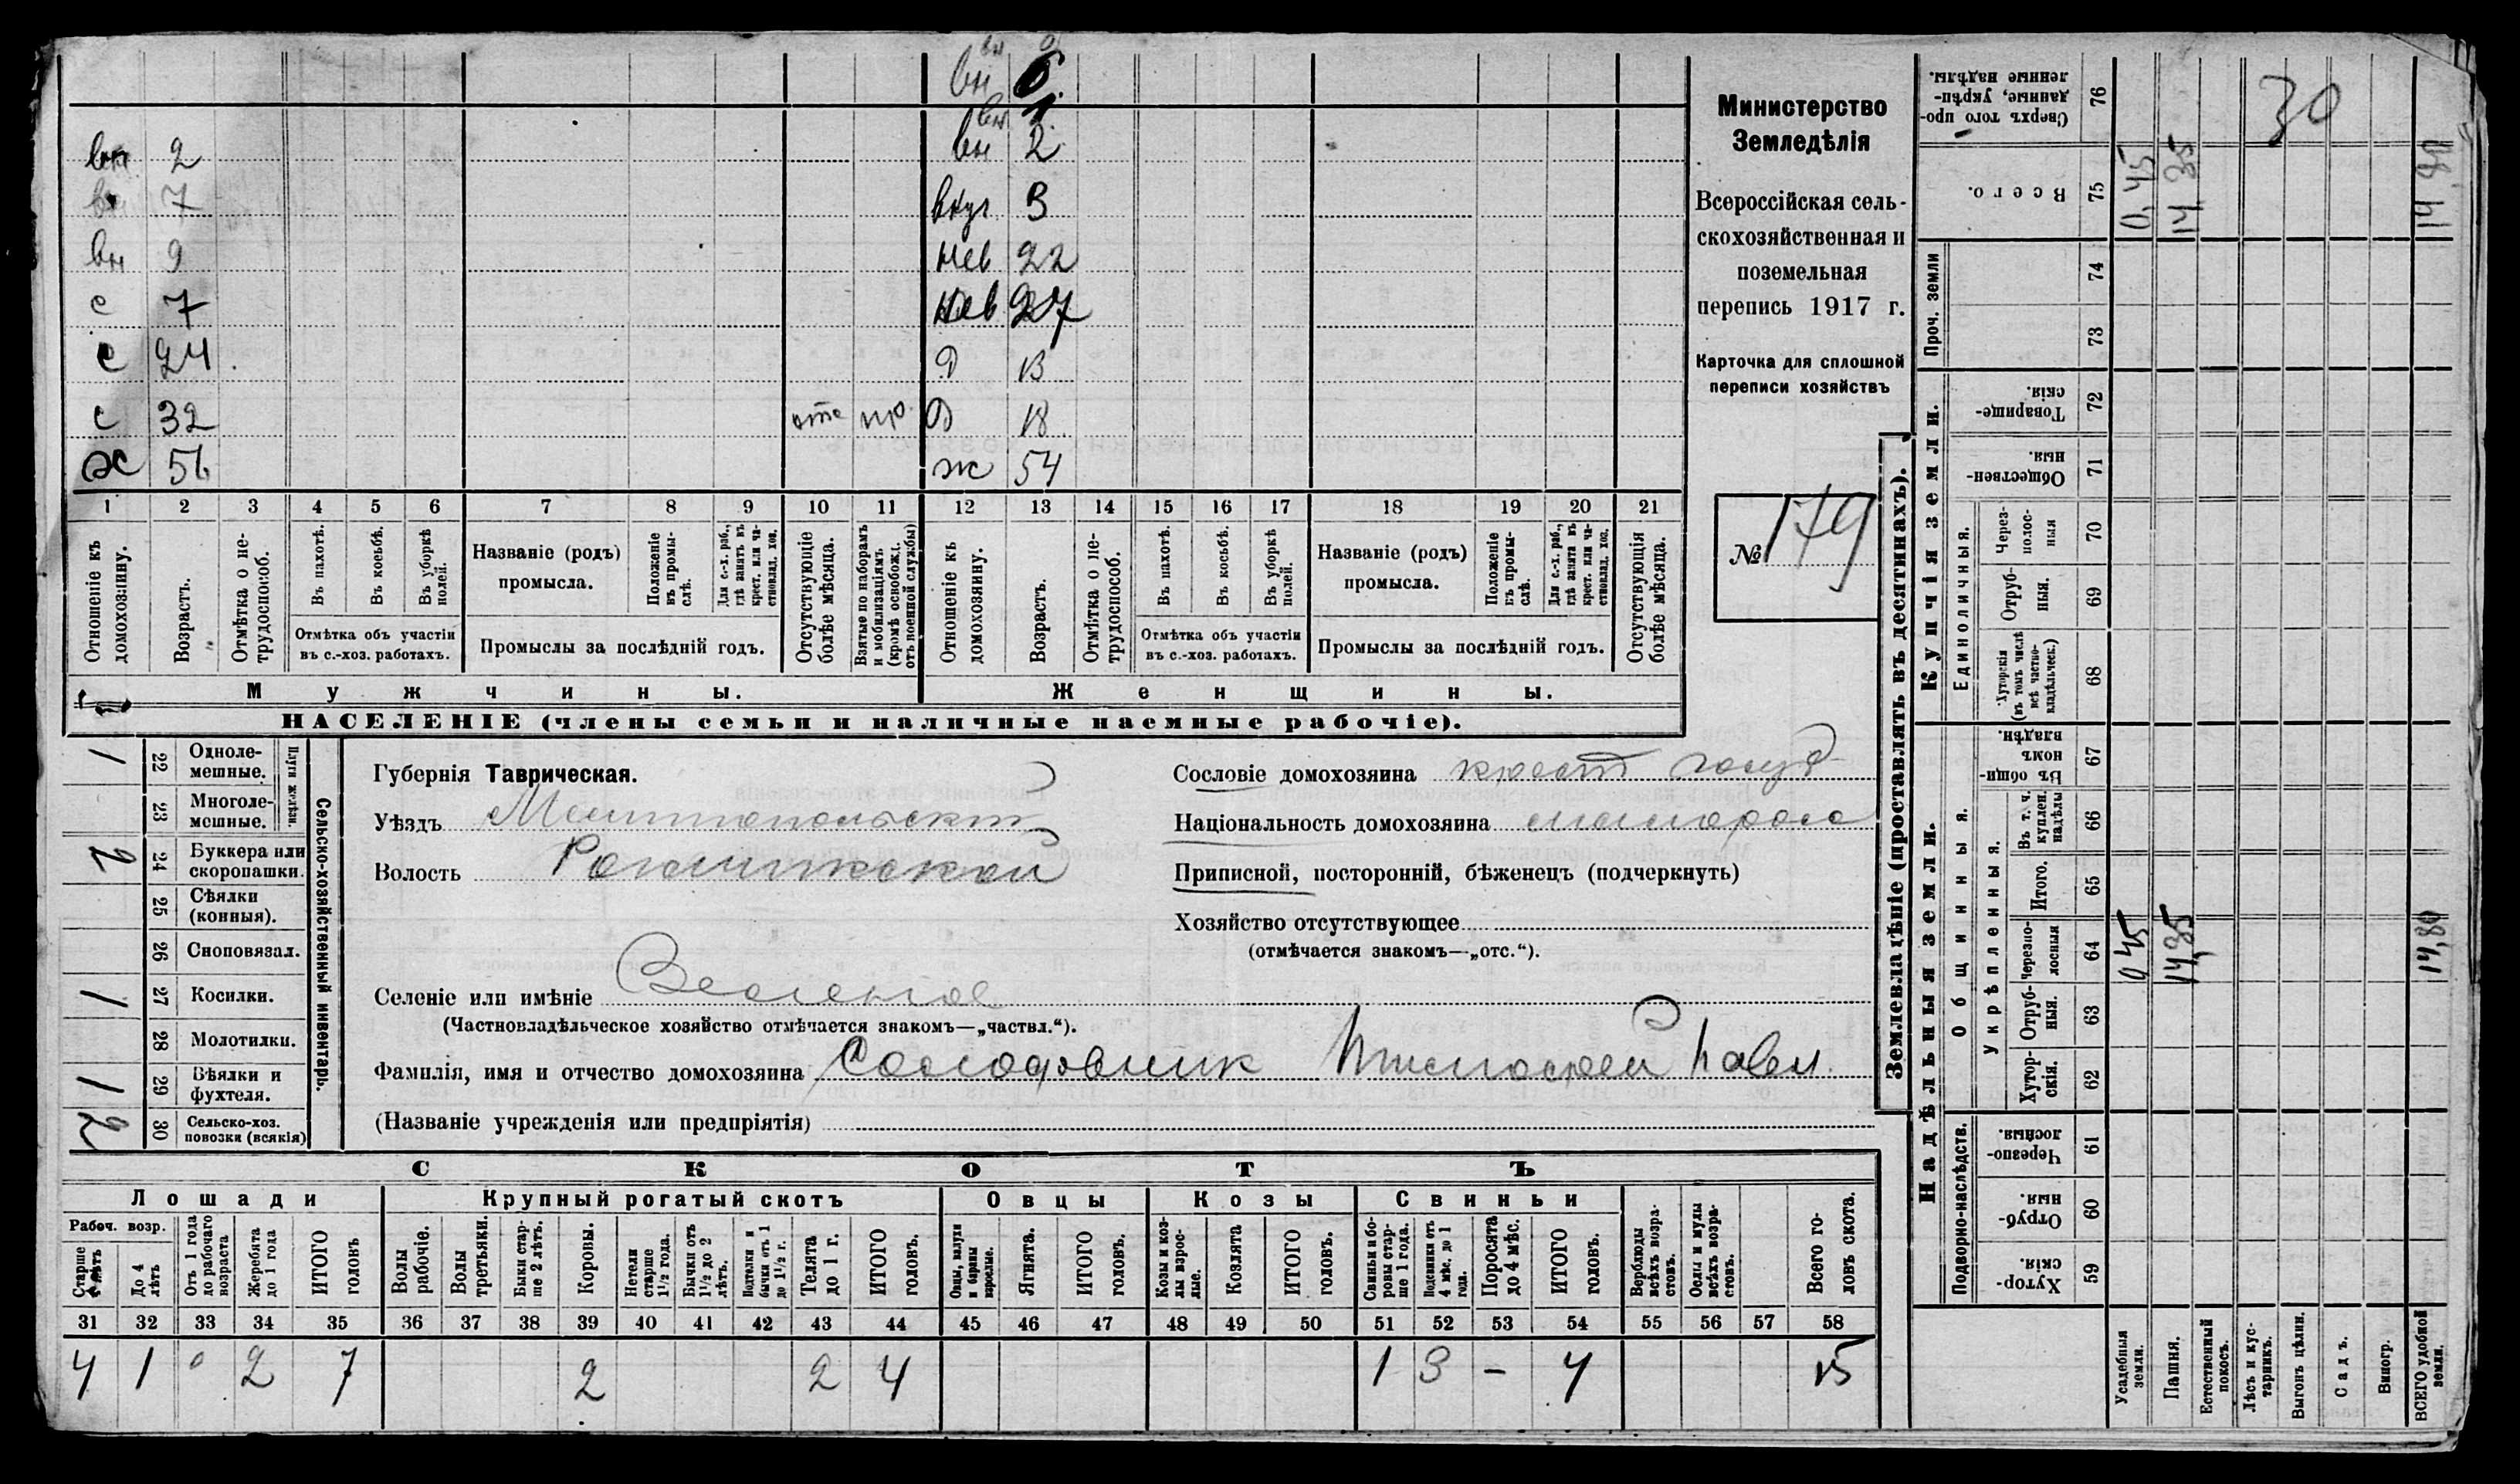 вн б.
вн 2 вн 2
вн 7 внуч 3
вн 9 нев 22
с 7 нев 27
с 24 Д 13
с 32 Д 18
ж 56 ж 54
1 2 3 4 5 6 7 8 9 10 11 12 13 14 15 16 17 18 19 20 21
Отношеніе къ домохозяину.
Возрастъ.
Отмѣтка о не-трудоспособ.
Въ пахотѣ.
Въ косьбѣ.
Въ уборкѣ полей.
Отмѣтка объ участіи
въ с.-хоз. работахъ.
Названіе (родъ)
промысла.
Положеніе въ промы-слѣ.
Для с.-х. раб., гдѣ занятъ въ крест. или ча-стновлад. хоз.
Промыслы за послѣдній годъ.
Отсутствующіе болѣе мѣсяца.
Взятые по наборамъ и мобилизаціямъ (кромѣ освобожд. отъ военной службы)
Отношеніе къ домохозяину.
Возрастъ.
Отмѣтка о не-трудоспособ.
Въ пахотѣ.
Въ косьбѣ.
Въ уборкѣ полей.
Отмѣтка объ участіи
въ с.-хоз. работахъ.
Названіе (родъ)
промысла.
Положеніе въ промы-слѣ.
Для с.-х. раб., гдѣ занята въ крест. или ча-стновлад. хоз.
Промыслы за послѣдній годъ.
Отсутствующія болѣе мѣсяца.
Мужчины. Женщины.
НАСЕЛЕНІЕ (члены семьи и наличные наемные рабочіе).
Министерство
Земледѣлія
Всероссійская сель-
скохозяйственная и
поземельная
перепись 1917 г.
Карточка для сплошной
переписи хозяйствъ
№ 179
Сельско-хозяйственный инвентарь.
Плуги желѣзн.
22 Одноле-мешные. 1
23 Многоле-мешные.
24 Буккера или скоропашки. 2
25 Сѣялки (конныя).
26 Сноповязал.
27 Косилки. 1
28 Молотилки.
29 Вѣялки и фухтеля. 1
30 Сельско-хоз. повозки (всякія) 2
Губернія Таврическая.
Уѣздъ Мелитопольскій
Волость
Селеніе или имѣніе Веселое
(Частновладѣльческое хозяйство отмѣчается знакомъ—„частвл.“).
Сословіе домохозяина крест
Національность домохозяина малоросс
Приписной, посторонній, бѣженецъ (подчеркнуть)
Хозяйство отсутствующее
(отмѣчается знакомъ—„отс.“).
Фамилія, имя и отчество домохозяина Солодовник Тимофей Павл.
(Названіе учрежденія или предпріятія)
СКОТЪ
Лошади Крупный рогатый скотъ Овцы Козы Свиньи
Рабоч. возр.
Старше 4 лѣтъ
До 4 лѣтъ
Отъ 1 года до рабочаго возраста
Жеребята до 1 года
ИТОГО головъ
Волы рабочіе.
Волы третьяки.
Быки стар-ше 2 лѣтъ.
Коровы.
Нетели старше 1½ года.
Бычки отъ 1½ до 2 лѣтъ.
Подтелки и бычки отъ 1 до 1½ г.
Телята до 1 г.
ИТОГО головъ.
Овцы, валухи и бараны взрослые.
Ягнята.
ИТОГО головъ.
Козы и коз-лы взрос-лые.
Козлята
ИТОГО головъ.
Свиньи и бо-ровы стар-ше 1 года.
Подсвинки отъ 4 мѣс. до 1 года.
Поросята до 4 мѣс.
ИТОГО головъ.
Верблюды всѣхъ возра-стовъ.
Ослы и мулы всѣхъ возра-стовъ.
Всего го-ловъ скота.
31 32 33 34 35 36 37 38 39 40 41 42 43 44 45 46 47 48 49 50 51 52 53 54 55 56 57 58
4 1 0 2 7 2 2 4 1 3 - 4 15
Землевладѣніе (проставлять въ десятинахъ).
Надѣльныя земли.
Купчія земли.
Подворно-наслѣдств.
Общинныя.
Укрѣпленныя.
Единоличныя.
Проч. земли
59 Хутор-скія.
60 Отруб-ныя.
61 Черезпо-лосныя.
62 Хутор-скія.
63 Отруб-ныя.
64 Черезпо-лосныя 0 45 14,35 14,80
65 Итого.
66 Въ т. ч. куплен. надѣлы
67 Въ общинномъ владѣн.
68 Хуторскія (въ томъ числѣ всѣ частно-владѣльческ.)
69 Отруб-ныя.
70 Через-полос-ныя
71 Обществен-ныя.
72 Товарище-скія.
73
74
75 Всего. 0,45 14 35 14,80
76 Сверхъ того про-данные, укрѣп-ленные надѣлы.
30
Усадебныя земли.
Пашня.
Естественный покосъ.
Лѣсъ и кус-тарникъ.
Выгонъ цѣлин.
Садъ.
Виногр.
ВСЕГО удобной земли.